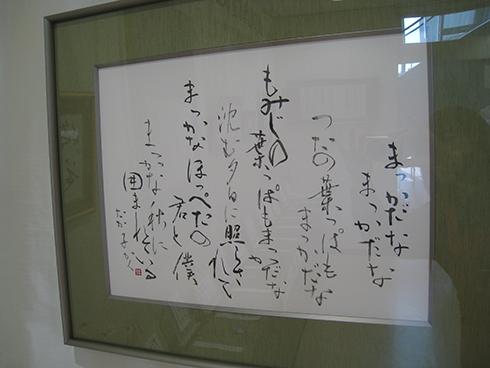 まっかだな
まっかだな
つたの葉っぱも
まっかだな
もみじの葉っぱもまっかだな
沈む夕日に照らされて
まっかなほっぺたの
君と僕
まっかな秋に
囲まれている